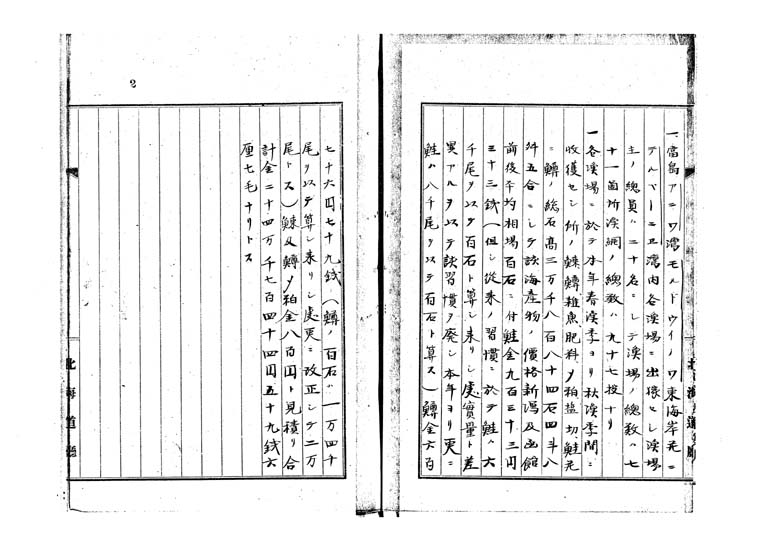 一當島アニワ湾モルドウイノワ東海岸並ニ
テルペーニヱ湾内各漁場ニ出稼セシ漁場
主ノ總員ハ二十名ニシテ漁場ノ總数ハ七
十一箇所漁網ノ總数ハ九十七投ナリ
一各漁場ニ於テ本年春漁季ヨリ秋漁季間ニ
收獲セシ所ノ鰊鱒雜魚肥料〆粕塩切鮭並
ニ鱒ノ総石高三万千八百八十四石四斗八
升五合ニシテ該海産物ノ價格新潟及函館
前後平均相場百石ニ付鮭金九百三十三円
三十三銭(但シ從来ノ習慣ニ於テ鮭ハ六
千尾ヲ以テ百石ト算シ来リシ處實量ト差
異アルヲ以テ該習慣ヲ廃シ本年ヨリ更ニ
鮭ハ八千尾ヲ以テ百石ト算ス)鱒金六百
七十六円七十九銭(鱒ノ百石ハ一万四千
尾ヲ以テ算シ来リシ處更ニ改正シテ二万
尾トス)鰊及鱒〆粕金八百円ト見積リ合
計金二十四万千七百四十四円五十九銭六
厘七毛ナリトス
2
北海道廳